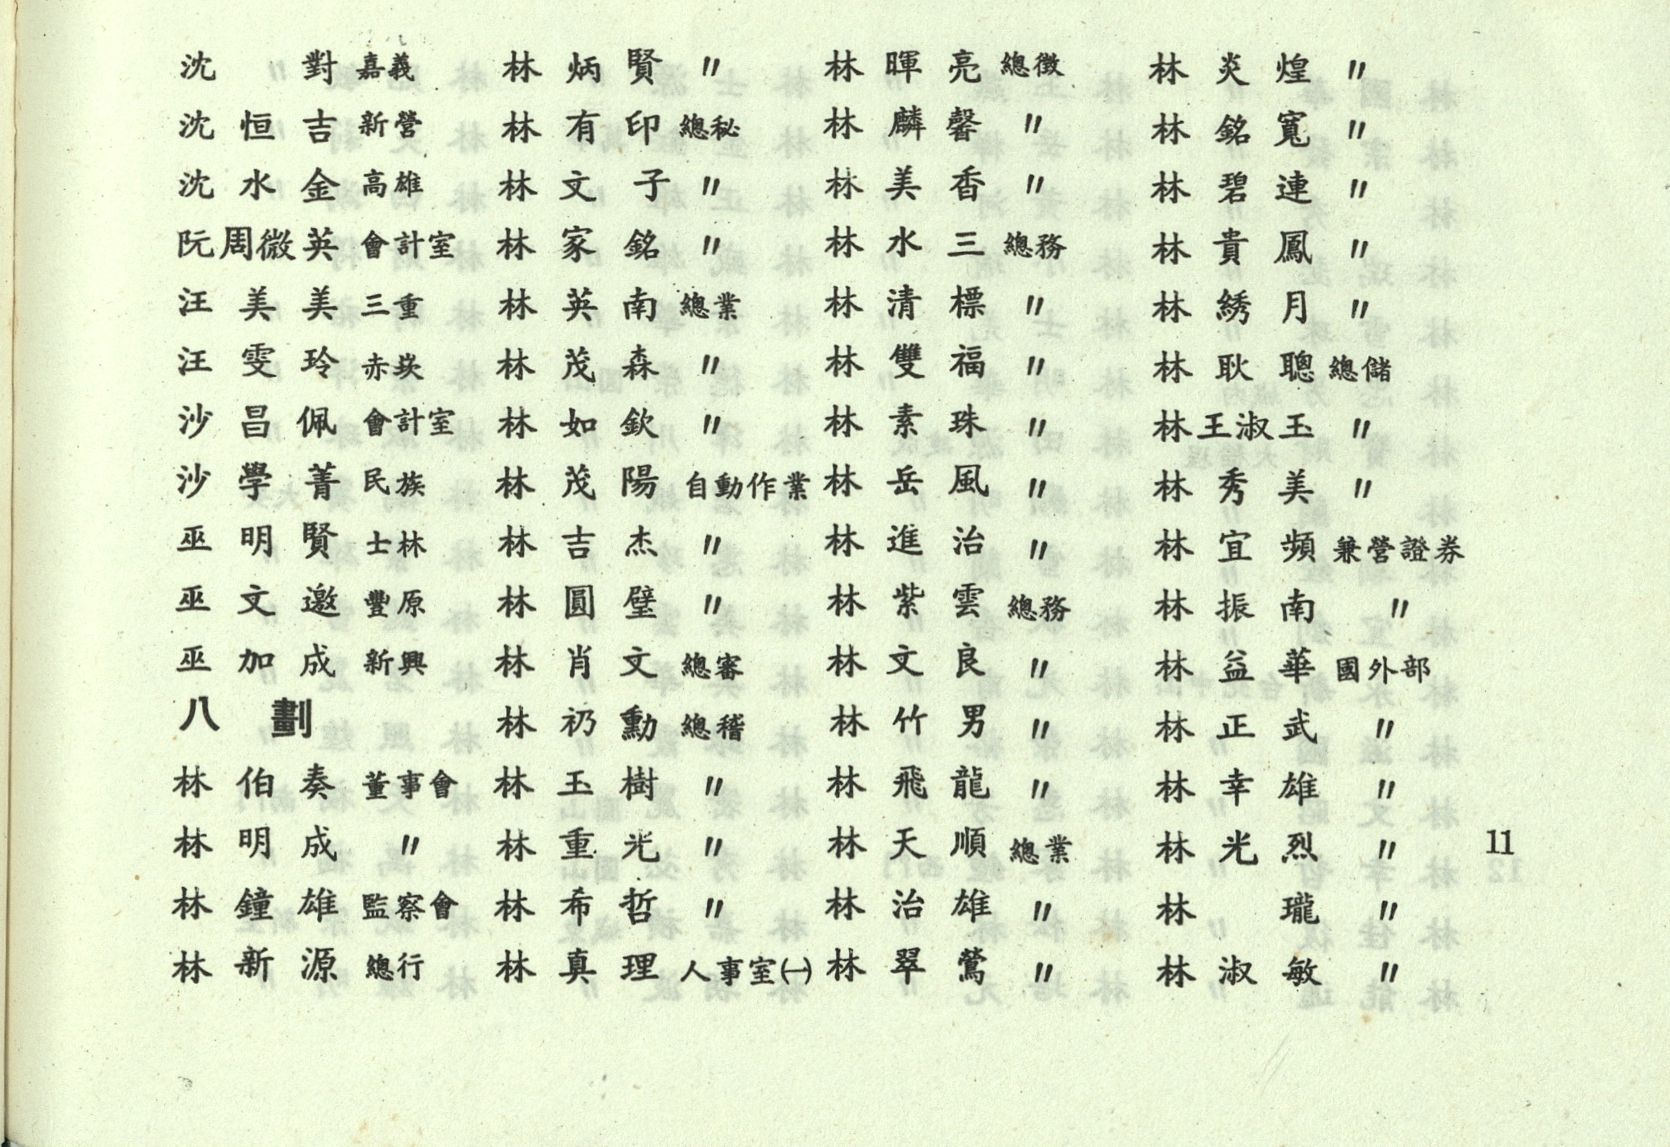 沈對 嘉義
沈恒吉 新營
沈水金 高雄
阮周微英 會計室
汪美美 三重
汪雯玲 赤崁
沙昌佩 會計室
沙學菁 民族
巫明賢 士林
巫文邀 豐原
巫加成 新興
八劃
林伯奏 董事會
林明成 〃
林鐘雄 監察會
林新源 總行
林炳賢 〃
林有印 總秘
林文子 〃
林家銘 〃
林英南 總業
林茂森 〃
林如欽 〃
林茂陽 自動作業
林吉杰 〃
林圓璧 〃
林肖文 總審
林礽勳 總稽
林玉樹 〃
林重光 〃
林希哲 〃
林真理 人事室㈠
林暉亮 總徵
林麟馨 〃
林美香 〃
林水三 總務
林清標 〃
林雙福 〃
林素珠 〃
林岳風 〃
林進治 〃
林紫雲 總務
林文良 〃
林竹男 〃
林飛龍 〃
林天順 總業
林治雄 〃
林翠鶯 〃
林炎煌 〃
林銘寬 〃
林碧連 〃
林貴鳳 〃
林綉月 〃
林耿聰 總儲
林王淑玉 〃
林秀美 〃
林宜頻 兼營證券
林振南 〃
林益華 國外部
林正武 〃
林幸雄 〃
林光烈 〃
林瓏 〃
林淑敏 〃
11